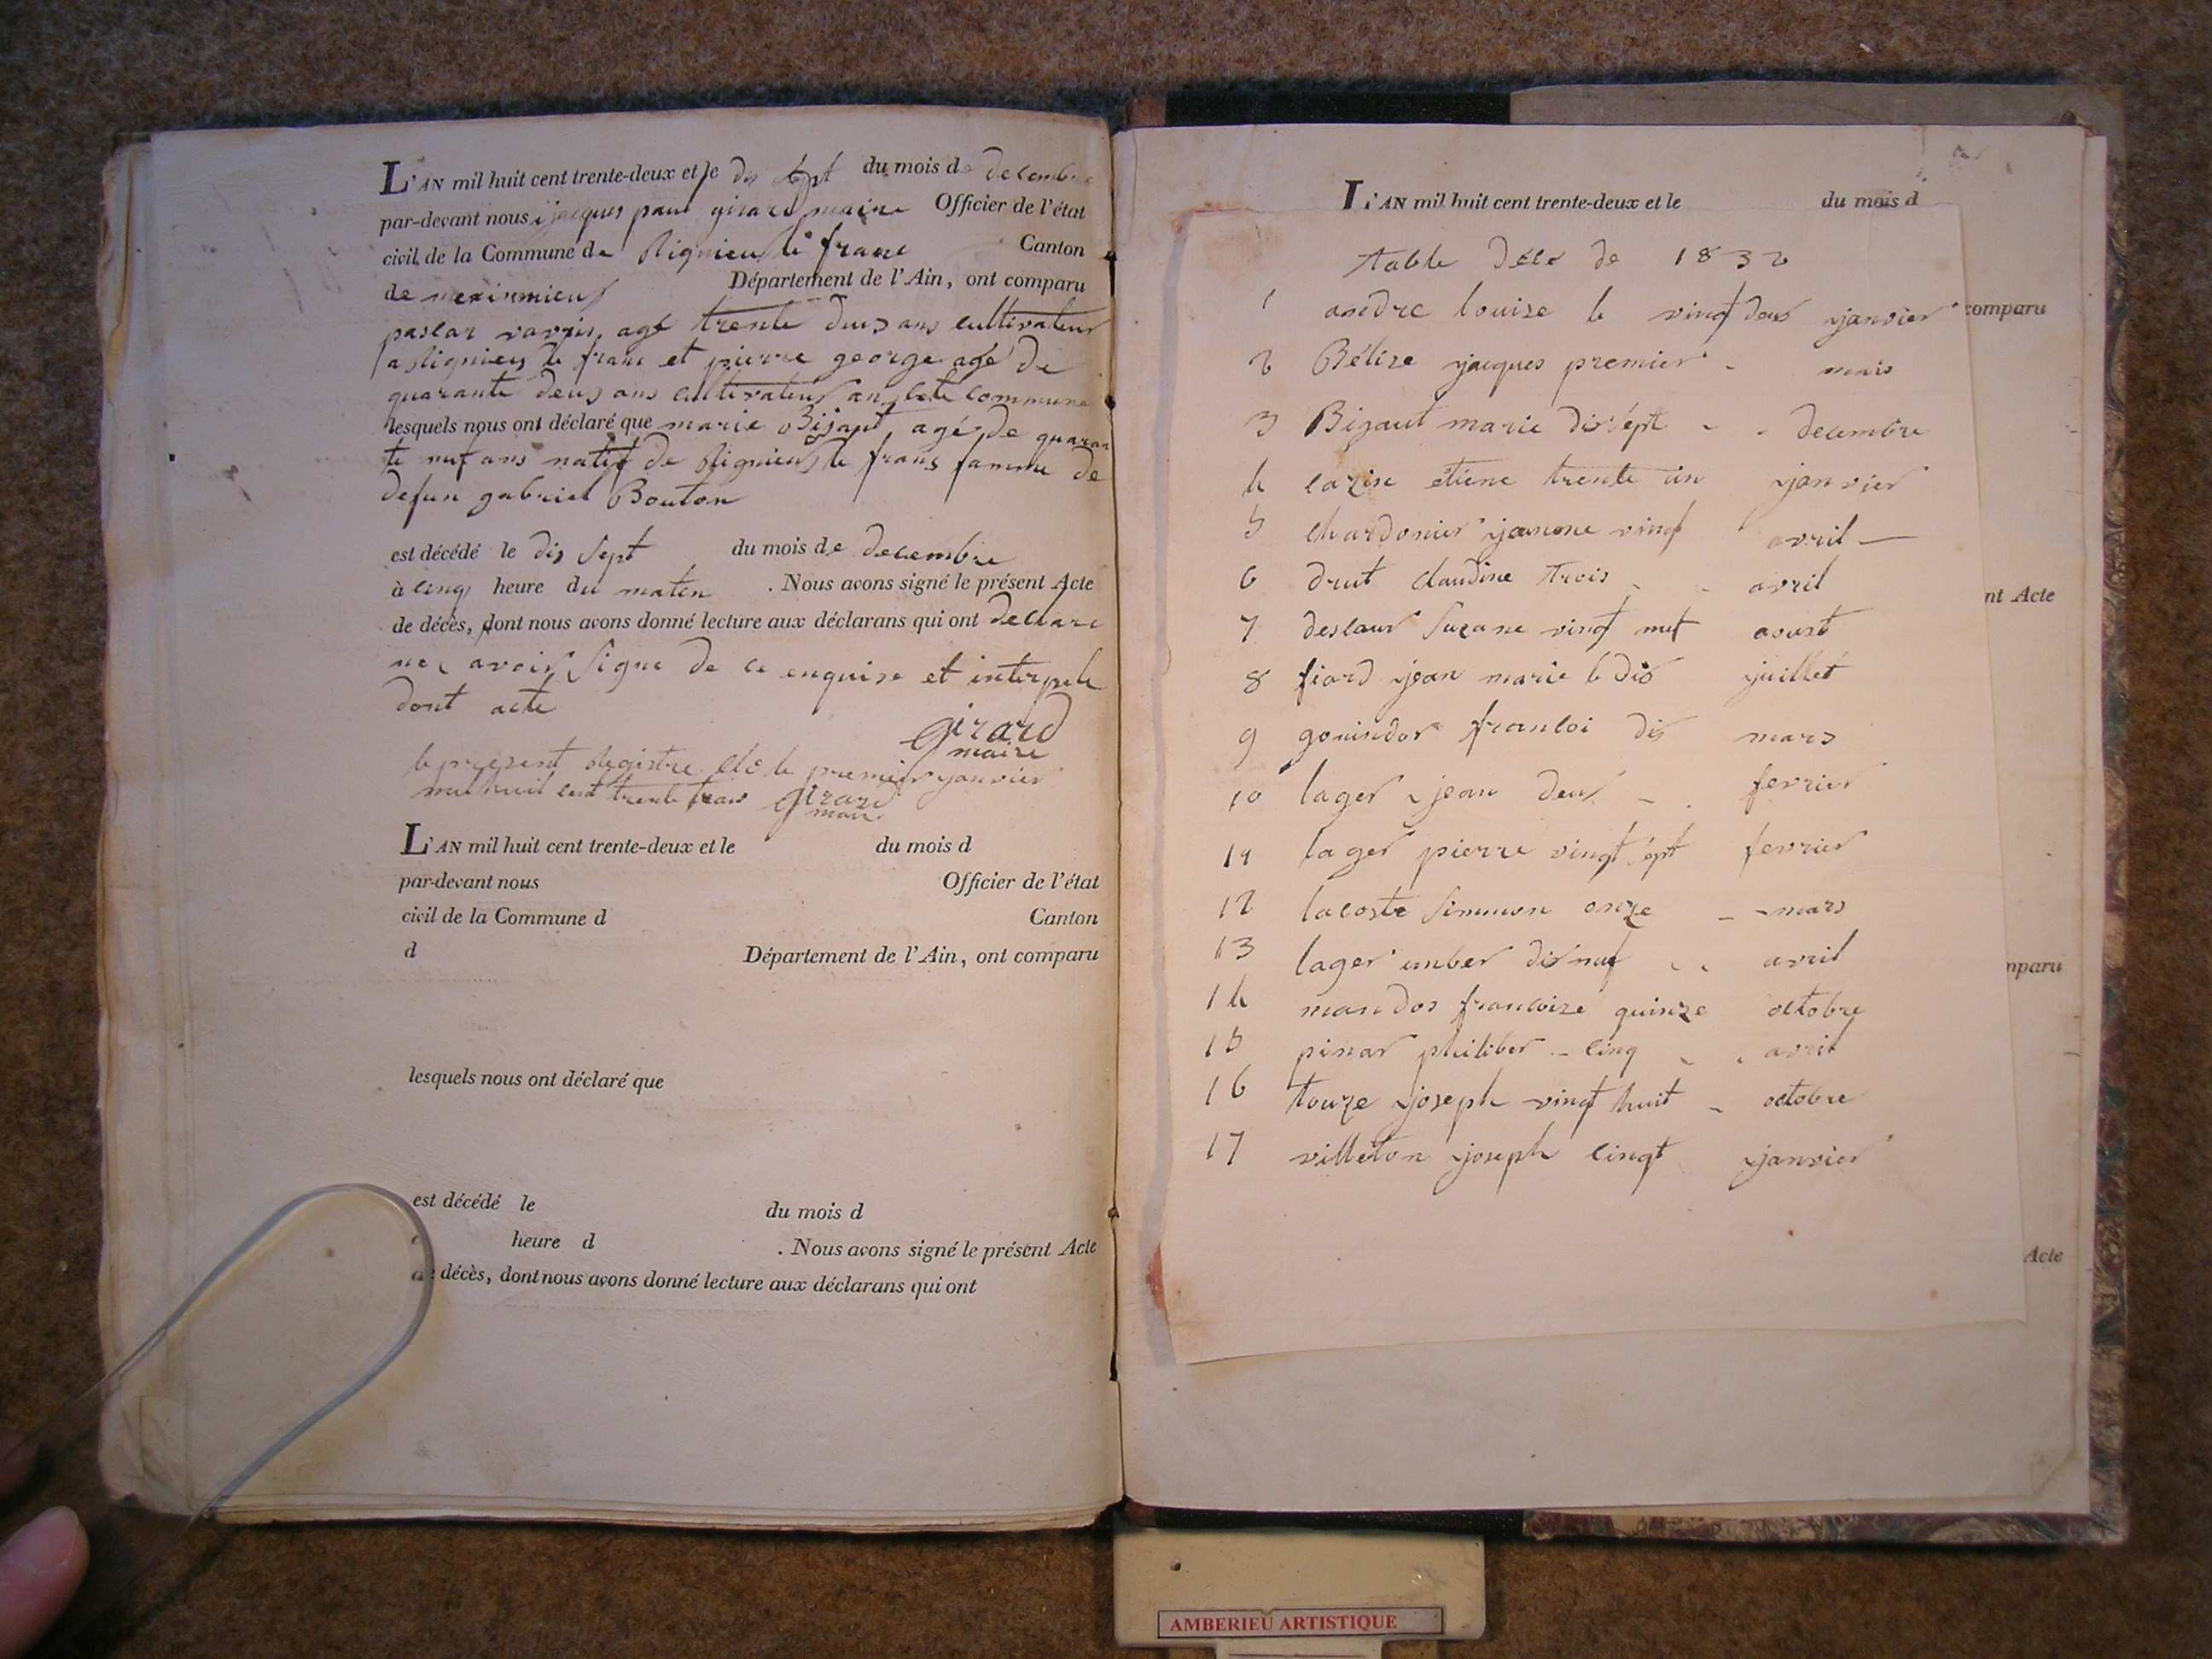 L'AN mil huit cent trente-deux et le dis sept du mois de decembre
par-devant nous jacques paul girard maire Officier de l'état
civil de la Commune de Rignieu le franc Canton
de meximieux Département de l'Ain, ont comparu
age trente deus ans cultivateur
a Rignieu le franc et pierre george agé de
quarante deus ans cultivateur an cete commune
lesquels nous ont déclaré que marie Bijaut agé de quaran
te nuf ans natif de Rignieu le franc famme de
defun gabriel Bouton
est décédé le dis sept du mois de decembre
à cinq heure du maten . Nous avons signé le présent Acte
de décès, dont nous avons donné lecture aux déclarans qui ont declare
ne avoir signe de ce enquise et interpele
dont acte
girard
maire
le present Registre clo le premier janvier
mil huit cent trente trois girard
maire
L'AN mil huit cent trente-deux et le du mois d
par-devant nous Officier de l'état
civil de la Commune d Canton
d Département de l'Ain, ont comparu
lesquels nous ont déclaré que
est décédé le du mois d
heure d . Nous avons signé le présent Acte
de décès, dont nous avons donné lecture aux déclarans qui ont
L'AN mil huit cent trente-deux et le du mois d
table dece de 1832
1 andre louise le vingt deus janvier
comparu
2 Bélize jacques premier - mais
3 Bijaut marie dis sept - - decembre
4 cozin etiene trente un janvier
5 chardonier janne vingt avril —
6 drut claudine trois - - avril
nt Acte
7 descour suzane vingt nuf aoust
8 fiard jean marie le dis juillet
9 francoi dis mars
10 lager jean deus - . fevrier
11 lager pierre vingt sept fevrier
12 lacoste simmon onze - - mars
13 lager umber dis nuf - - avril
mparu
14 mandos francoize quinze octobre
15 pinar philiber - cinq - - avril
16 touze joseph vingt huit - octobre
17 villeton joseph cinqt janvier
Acte
AMBERIEU ARTISTIQUE